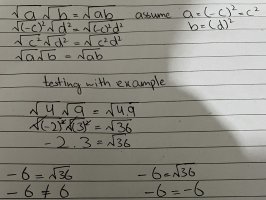 √a √b = √ab assume a=(-c)²=c²
√(-c)² √d² = √(-c)²d² b=(d)²
√c² √d² = √c²d²
√a √b = √ab
testing with example
√4 √9 = √4.9
√(-2)² √(3)² = √36
-2 . 3 = √36
-6 = √36 -6 = √36
-6 ≠ 6 -6 = -6